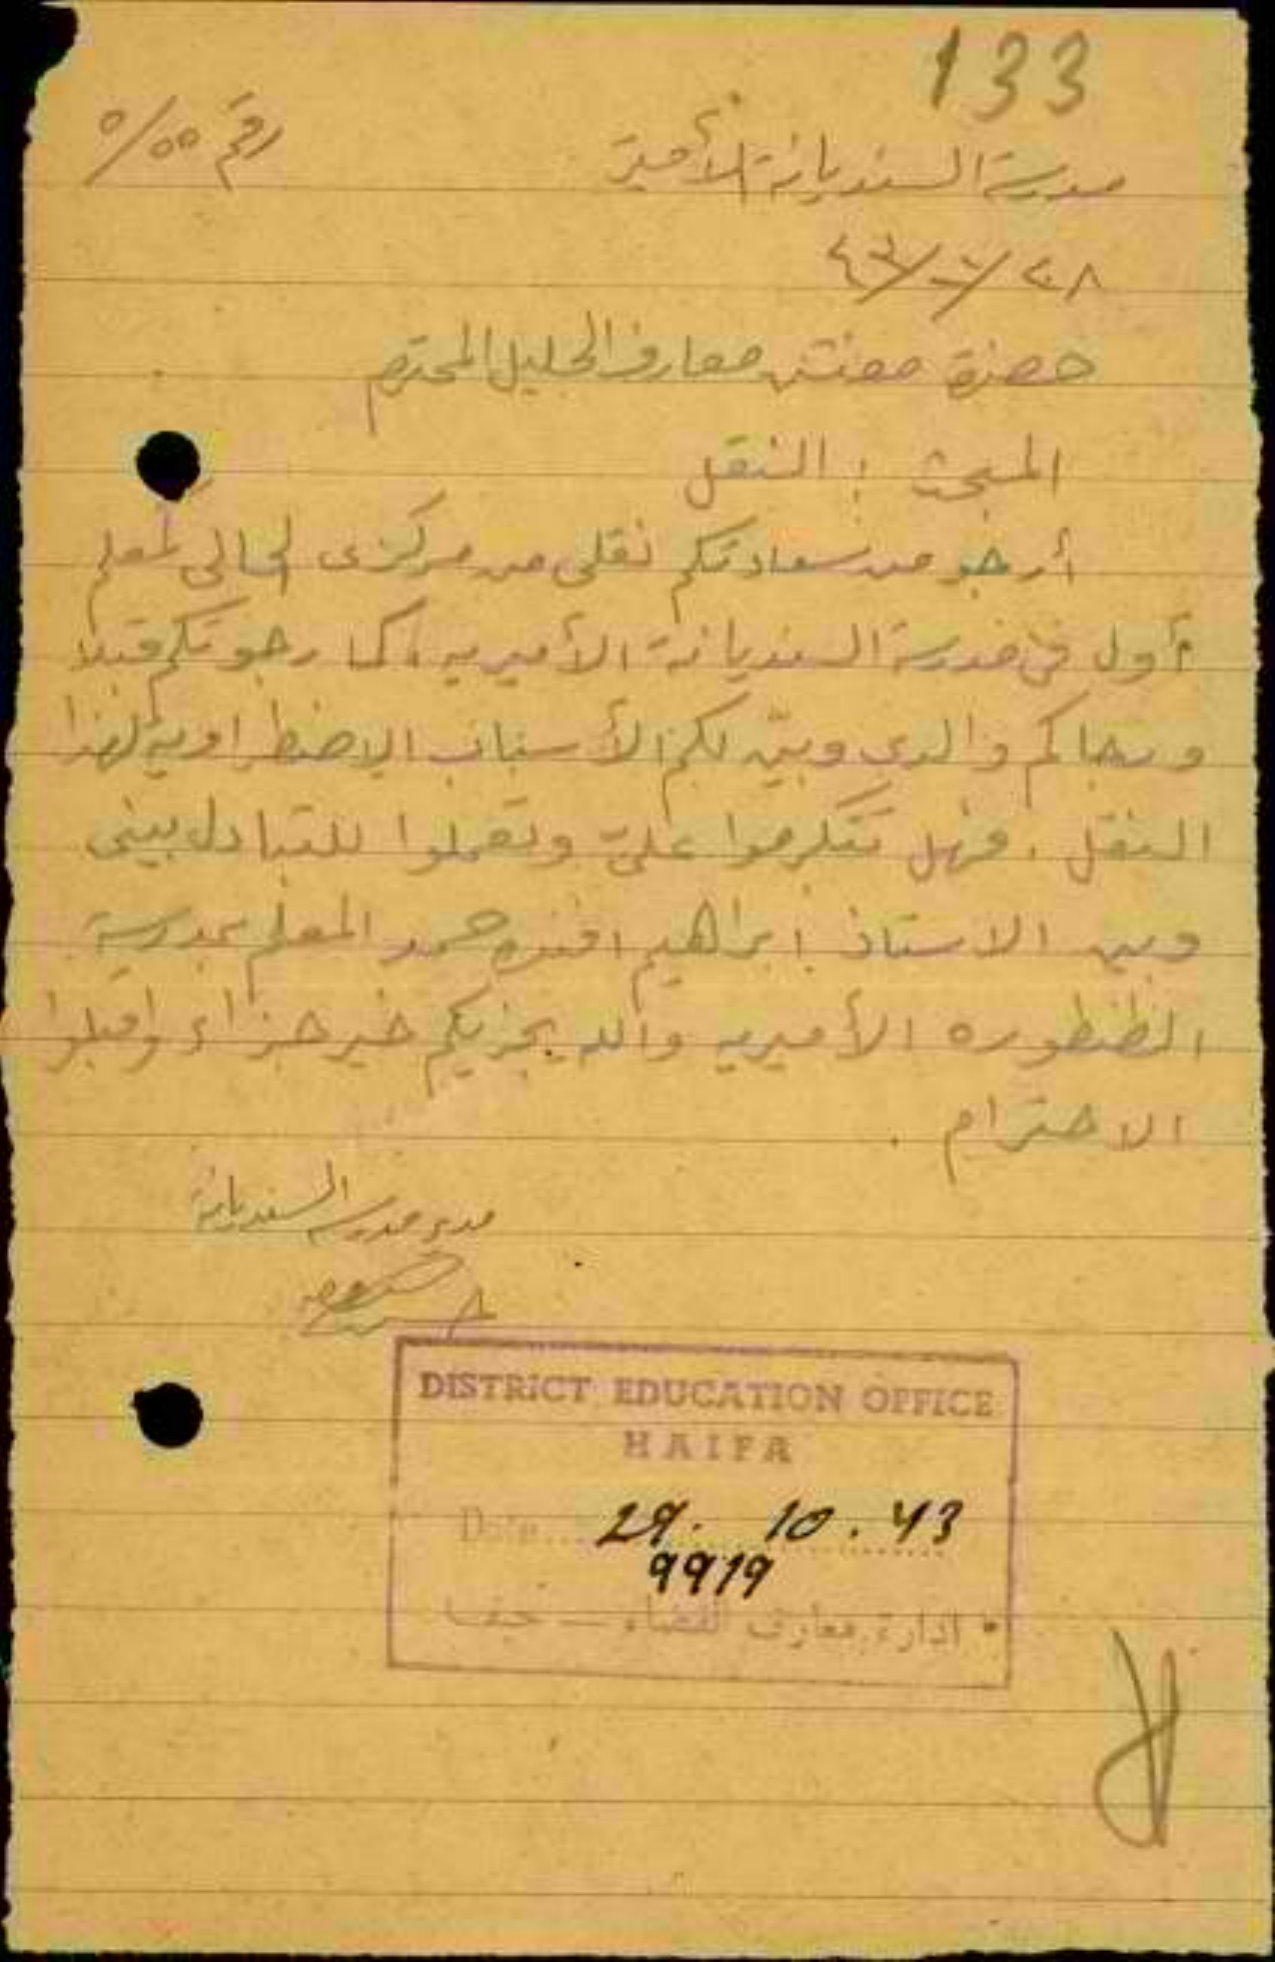 133
مدرسة السنديانة الأميرية
رقم ٥/٥٥
حضرة مفتش معارف الجليل المحترم
المبحث : النقل
أرجو من سعادتكم نقلي من مركزى الحالى كمعلم
أول في مدرسة السنديانة الأميريه ، كما رجوتكم قبلا
ورجاكم والدي وبيّن لكم الأسباب الاضطراريه لهذا
النقل . فهل تتكرموا عليّ وتعملوا للتبادل بيني
وبين الاستاذ ابراهيم افندي حمد المعلم بمدرسة
الطنطوره الأميريه والله يجزيكم خير جزاء واقبلوا
الاحترام .
مدير مدرسة السنديانة
DISTRICT EDUCATION OFFICE
HAIFA
Date... 29. 10. 43
9919
ادارة معارف لقضاء — حيفا